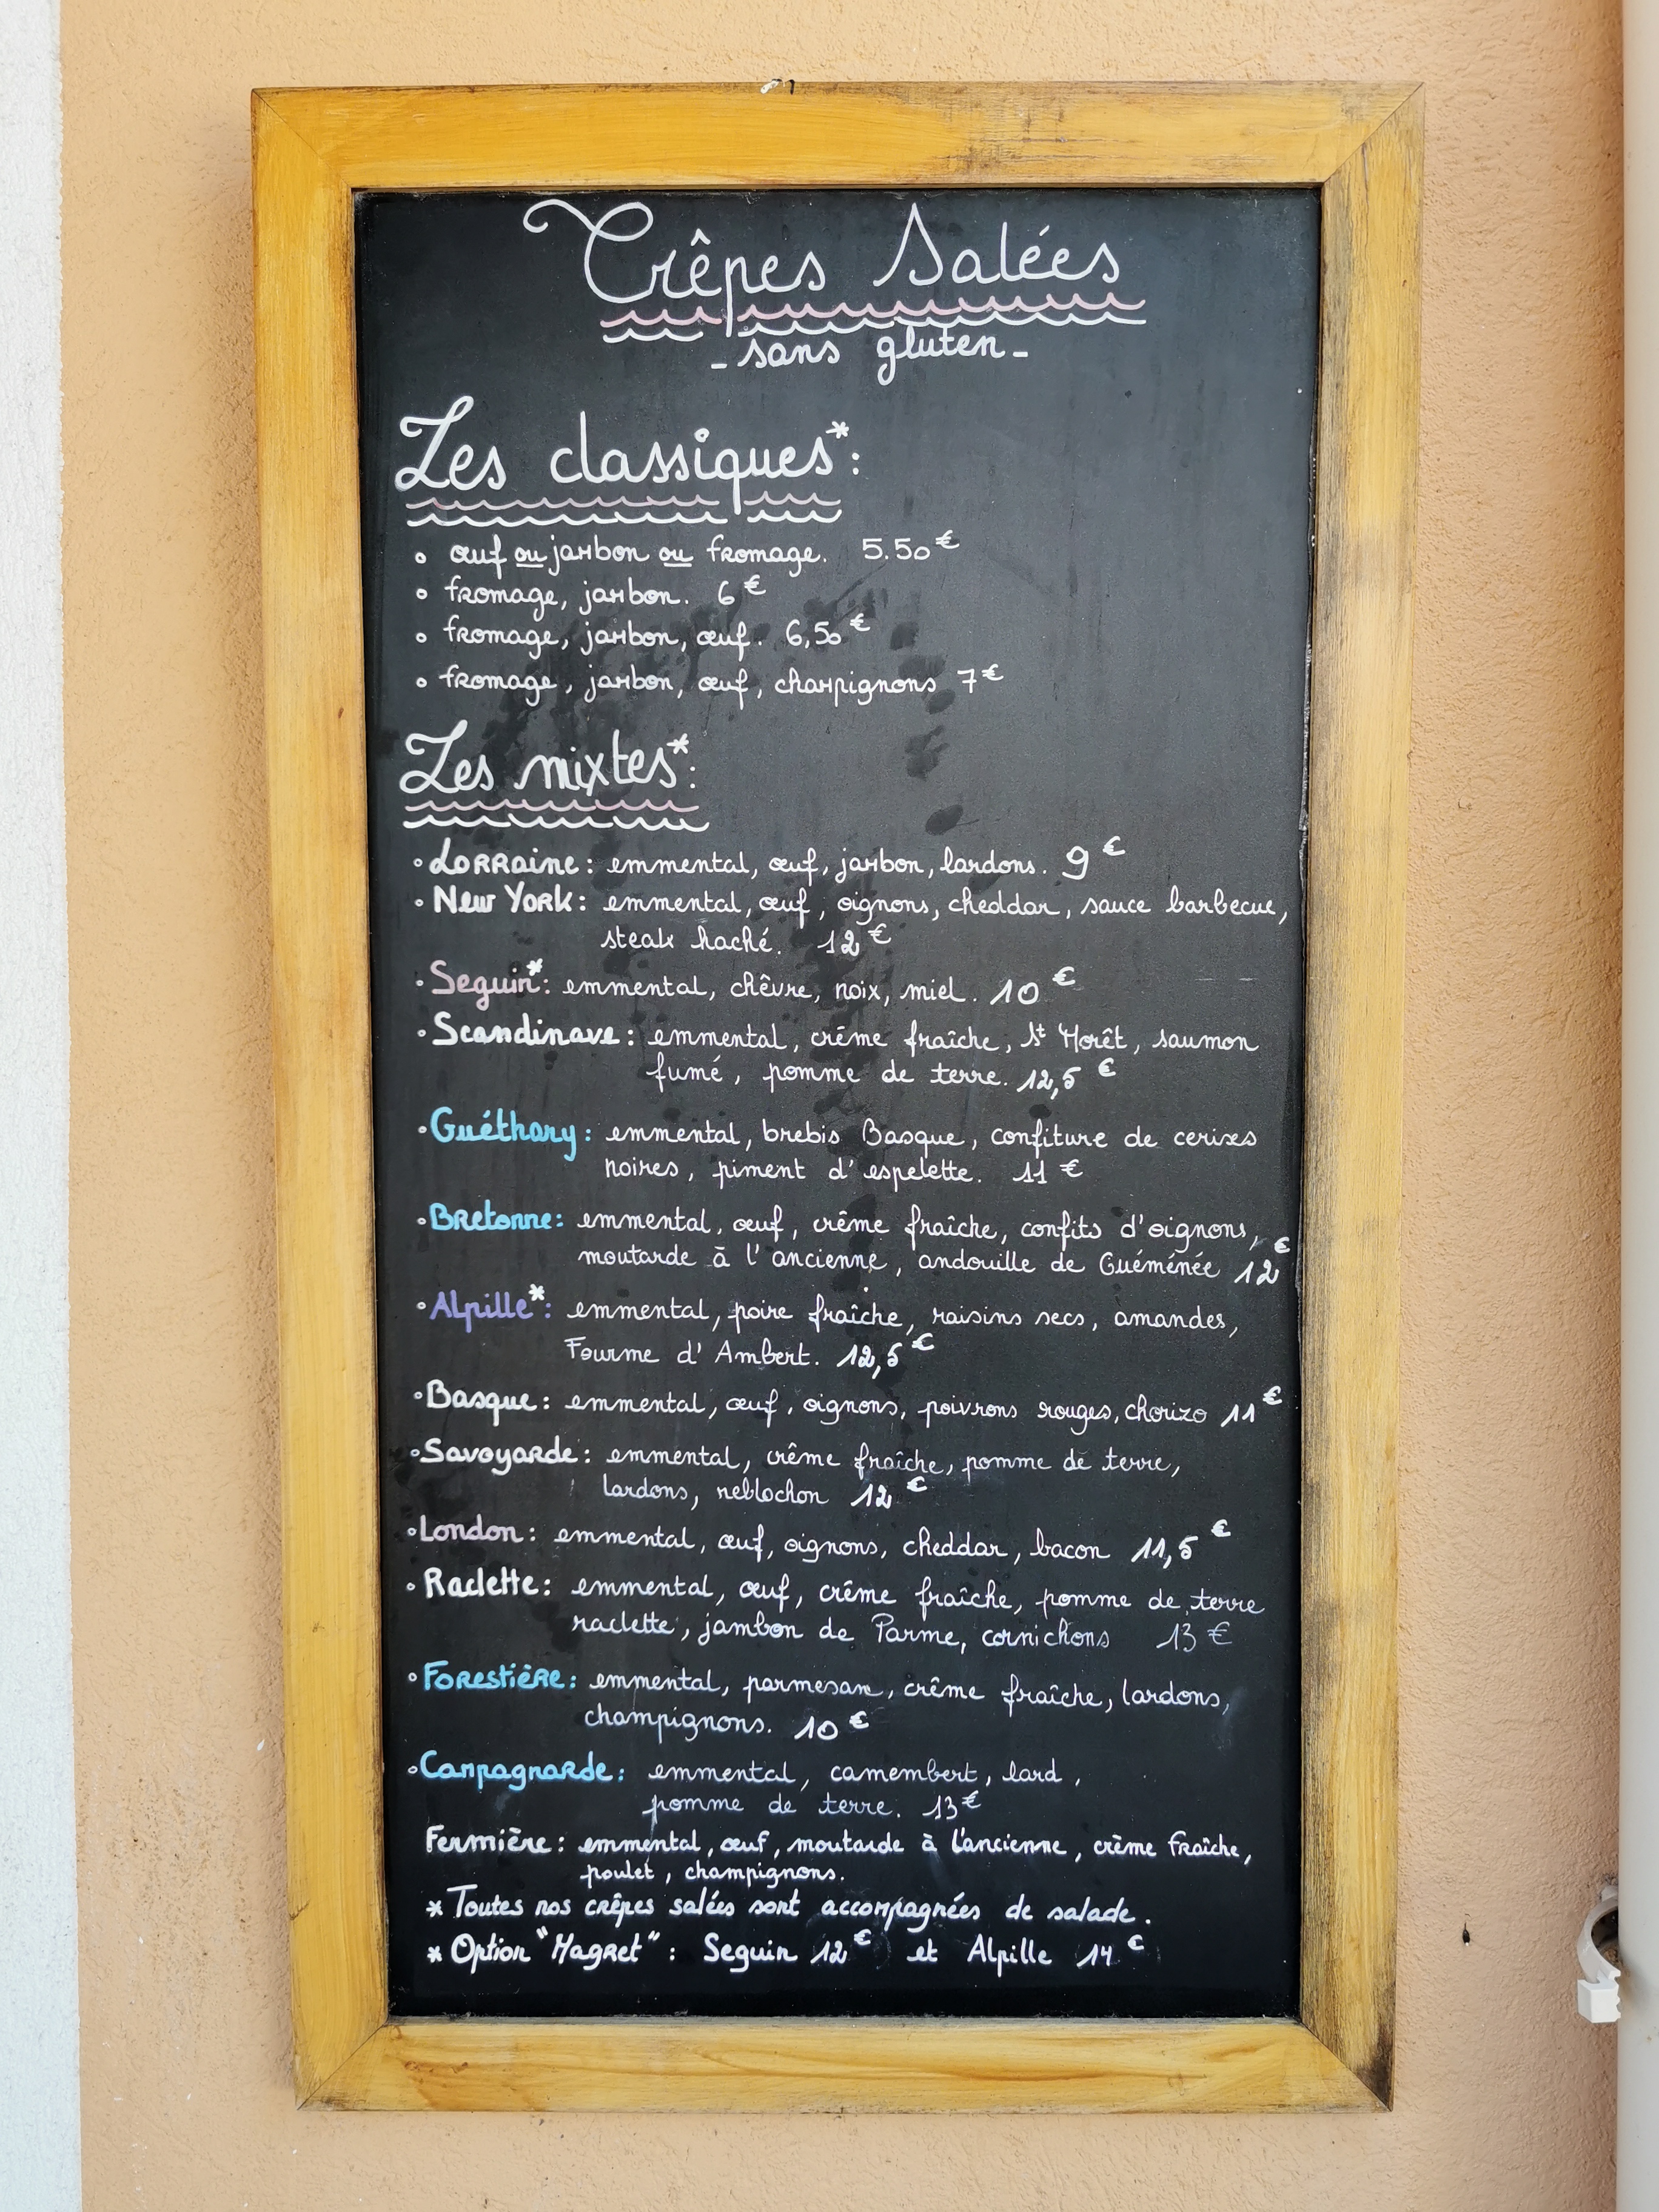 Crêpes Salées
- sans gluten -
Les classiques* :
° œuf ou jambon ou fromage. 5.50 €
° fromage, jambon. 6 €
° fromage, jambon, œuf. 6,50 €
° fromage, jambon, œuf, champignons 7 €
Les mixtes* :
° Lorraine : emmental, œuf, jambon, lardons. 9 €
° New York : emmental, œuf, oignons, cheddar, sauce barbecue,
steak haché. 12 €
° Seguin* : emmental, chêvre, noix, miel. 10 €
° Scandinave : emmental, crême fraîche, St Morêt, saumon
fumé, pomme de terre. 12,5 €
° Guéthary : emmental, brebis Basque, confiture de cerises
noires, piment d'espelette. 11 €
° Bretonne : emmental, œuf, crême fraîche, confits d'oignons,
moutarde à l'ancienne, andouille de Guéménée 12 €
° Alpille* : emmental, poire fraîche, raisins secs, amandes,
Fourme d'Ambert. 12,5 €
° Basque : emmental, œuf, oignons, poivrons rouges, chorizo 11 €
° Savoyarde : emmental, crême fraîche, pomme de terre,
lardons, reblochon 12 €
° London : emmental, œuf, oignons, cheddar, bacon 11,5 €
° Raclette : emmental, œuf, crême fraîche, pomme de terre
raclette, jambon de Parme, cornichons 13 €
° Forestière : emmental, parmesan, crême fraîche, lardons,
champignons. 10 €
° Campagnarde : emmental, camembert, lard,
pomme de terre. 13 €
Fermière : emmental, œuf, moutarde à l'ancienne, crème fraîche,
poulet, champignons.
* Toutes nos crêpes salées sont accompagnées de salade.
* Option "Magret" : Seguin 12 € et Alpille 14 €